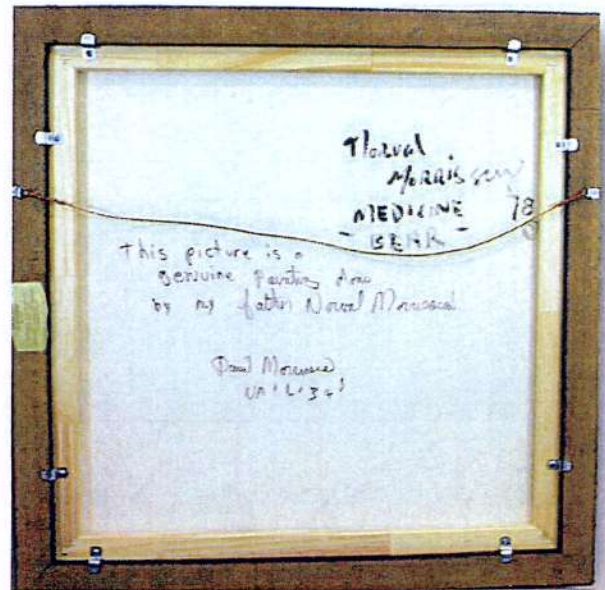 Norval
Morrisseau
MEDICINE 78
- BEAR -
This picture is a
genuine painting done
by my father Norval Morrisseau
David Morrisseau